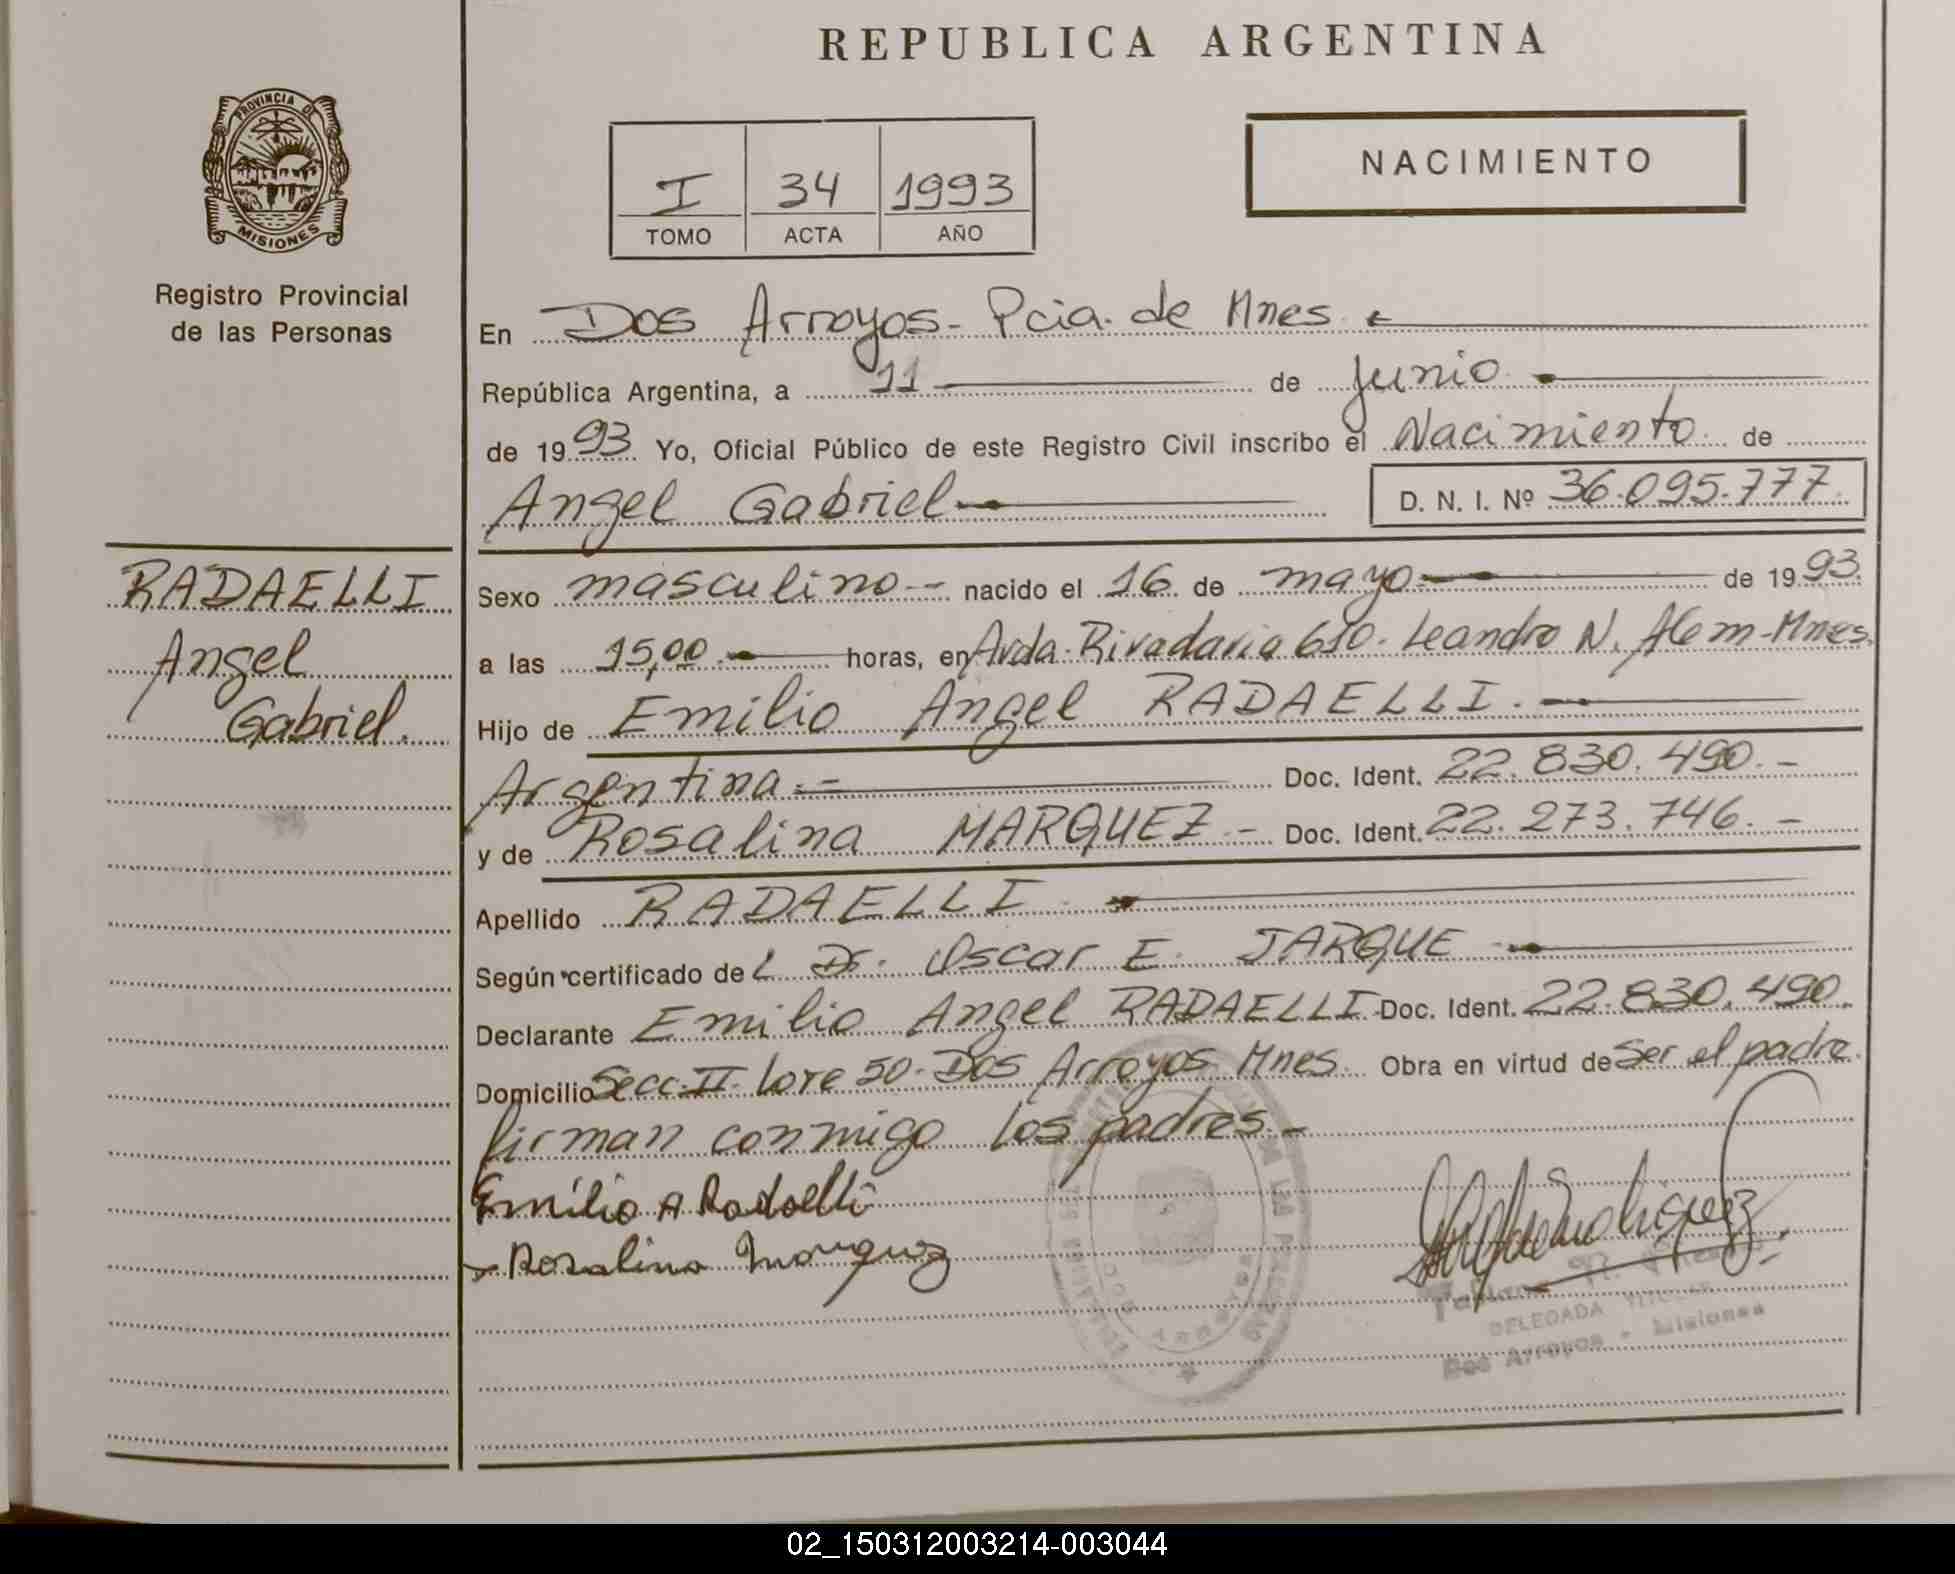 REPUBLICA ARGENTINA
PROVINCIA DE
MISIONES
Registro Provincial
de las Personas
I 34 1993
TOMO ACTA AÑO
NACIMIENTO
En Dos Arroyos - Pcia. de Mnes.
República Argentina, a 11 de junio
de 1993 Yo, Oficial Público de este Registro Civil inscribo el Nacimiento de
Angel Gabriel D. N. I. Nº 36.095.777
RADAELLI
Angel
Gabriel.
Sexo masculino nacido el 16 de mayo de 1993.
a las 15,00 horas, en Avda. Rivadavia 610. Leandro N. Alem - Mnes.
Hijo de Emilio Angel RADAELLI.
Argentina. Doc. Ident. 22.830.490. -
y de Rosalina MARQUEZ. - Doc. Ident. 22.273.746. -
Apellido RADAELLI
Según certificado del Dr. Oscar E. JARQUE
Declarante Emilio Angel RADAELLI Doc. Ident. 22.830.490.
Domicilio Secc. II. Lote 50 - Dos Arroyos Mnes. Obra en virtud de ser el padre.
firman conmigo los padres. -
Emilio A Radaelli
Rosalina Marquez
DELEGADA TITULAR
Dos Arroyos - Misiones
02_150312003214-003044